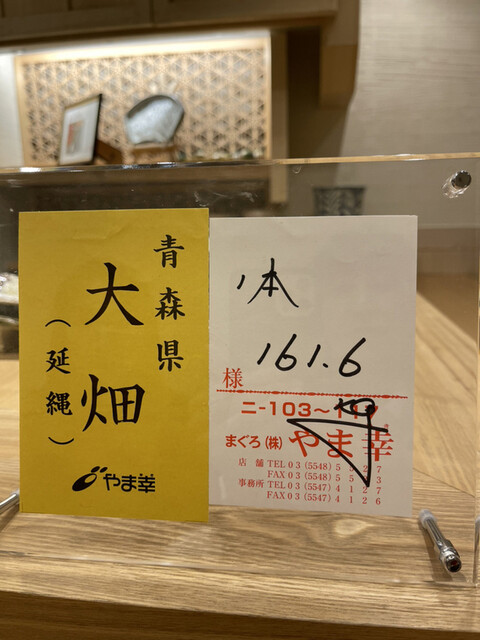 青森県
大畑
（延縄）
やま幸
本
161.6
様
ニ-103〜
まぐろ(株)やま幸
店舗 TEL 03 (5548) 5
FAX 03 (5548) 5
事務所 TEL 03 (5547) 4127
FAX 03 (5547) 4126